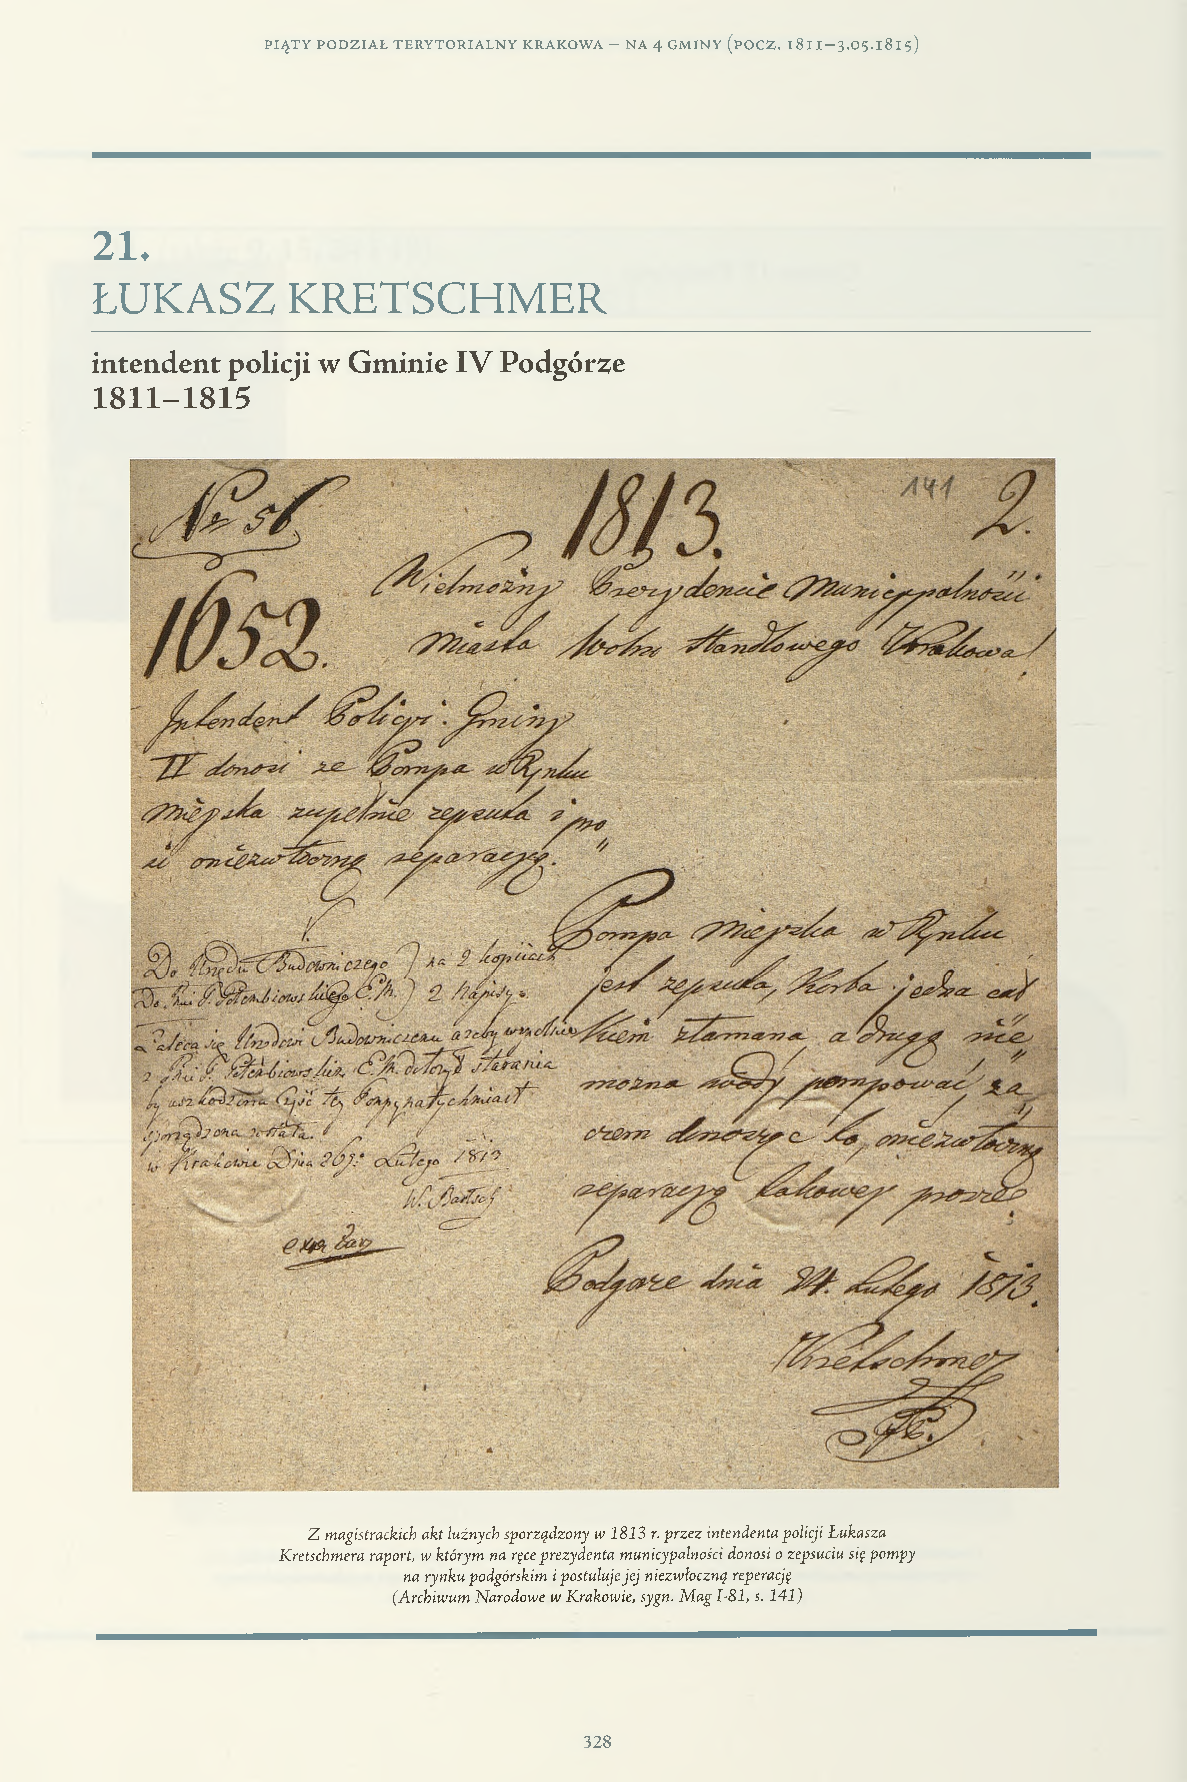 PIĄTY PODZIAŁ TERYTORIALNY KRAKOWA – NA 4 GMINY (POCZ. 1811–3.05.1815)
21.
ŁUKASZ KRETSCHMER
intendent policji w Gminie IV Podgórze
1811–1815
Nr 56
1813.
141
2.
1652.
Wielmożny Prezydencie Municypalności
Miasta Wolno Handlowego Krakowa!
Intendent Policyi Gminy
IV donosi ze Pompa w Rynku
Mieyska zupełnie zepsuta i pro
si oniezwłoczną reparacyą.
Pompa Mieyska w Rynku
jest zepsuta, Korba jedna cał
kiem złamana a drugą nie
mozna wody pompować, za
czem donosząc to, oniezwłoczną
reparacyą takowey prosze
Podgorze dnia 24. Lutego 1813.
Kretschmer
Do Urzędu Budowniczego ) na 2 kopiiach
2 Napisy
Zaleca się Urzędowi Budowniczemu azeby wspolnie
starania
by uszkodzona Część tey Pompy natychmiast
sporządzona została.
w Krakowie Dnia 26go Lutego 1813
W. Bartsch
Z magistrackich akt luźnych sporządzony w 1813 r. przez intendenta policji Łukasza
Kretschmera raport, w którym na ręce prezydenta municypalności donosi o zepsuciu się pompy
na rynku podgórskim i postuluje jej niezwłoczną reperację
(Archiwum Narodowe w Krakowie, sygn. Mag I-81, s. 141)
328